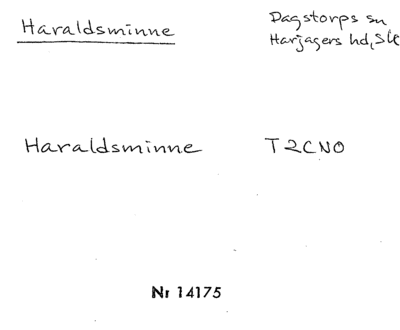 Haraldsminne
Dagstorps sn
Harjagers hd, Sk
Haraldsminne T2CNO
Nr 14175